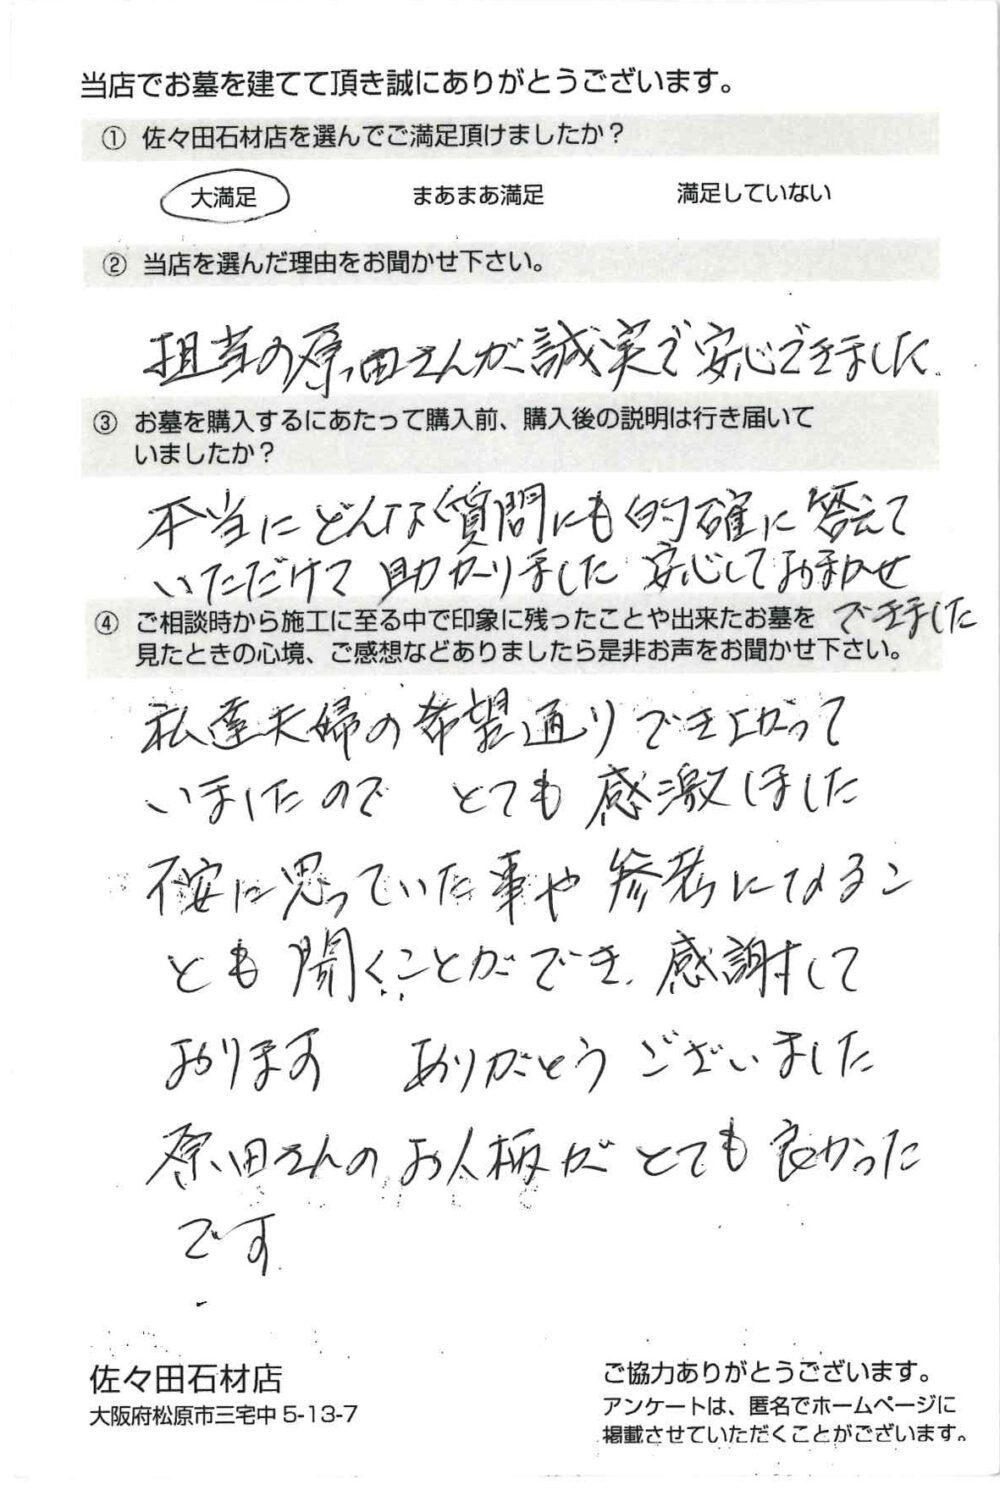 当店でお墓を建てて頂き誠にありがとうございます。
① 佐々田石材店を選んでご満足頂けましたか？
大満足 まあまあ満足 満足していない
② 当店を選んだ理由をお聞かせ下さい。
担当の原田さんが誠実で安心できました.
③ お墓を購入するにあたって購入前、購入後の説明は行き届いて
いましたか？
本当にどんな質問にも的確に答えて
いただけて 助かりました 安心してお任せ
できました
④ ご相談時から施工に至る中で印象に残ったことや出来たお墓を
見たときの心境、ご感想などありましたら是非お声をお聞かせ下さい。
私達夫婦の希望通りでき上がって
いましたので とても感激しました
不安に思っていた事や参考になるこ
とも聞くことができ. 感謝して
おります ありがとうございました
原田さんのお人柄がとても良かった
です
佐々田石材店
大阪府松原市三宅中 5-13-7
ご協力ありがとうございます。
アンケートは、匿名でホームページに
掲載させていただくことがございます。